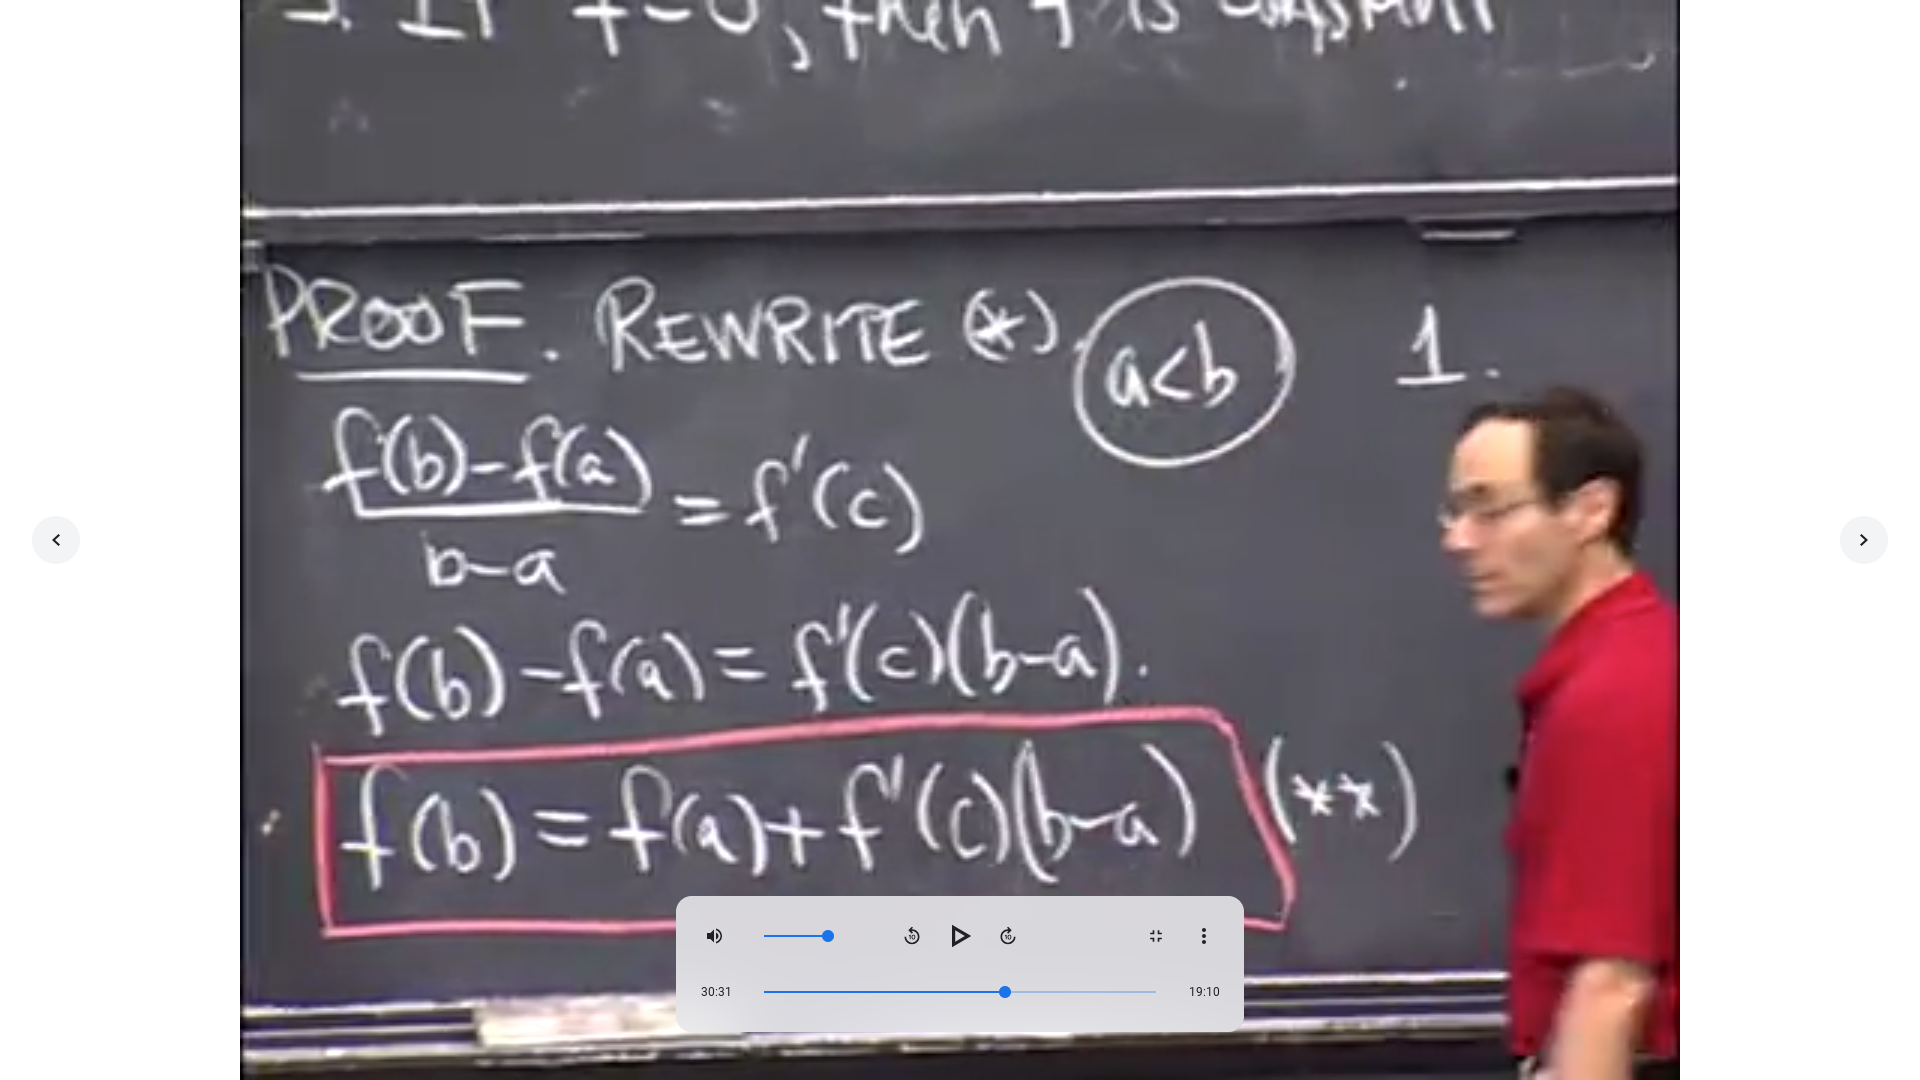 3. If f'=0, then f is constant
PROOF. REWRITE (*). a<b 1.
f(b)-f(a)
b-a
= f'(c)
f(b)-f(a) = f'(c)(b-a).
f(b) = f(a)+f'(c)(b-a) (**)
10
10
30:31
19:10